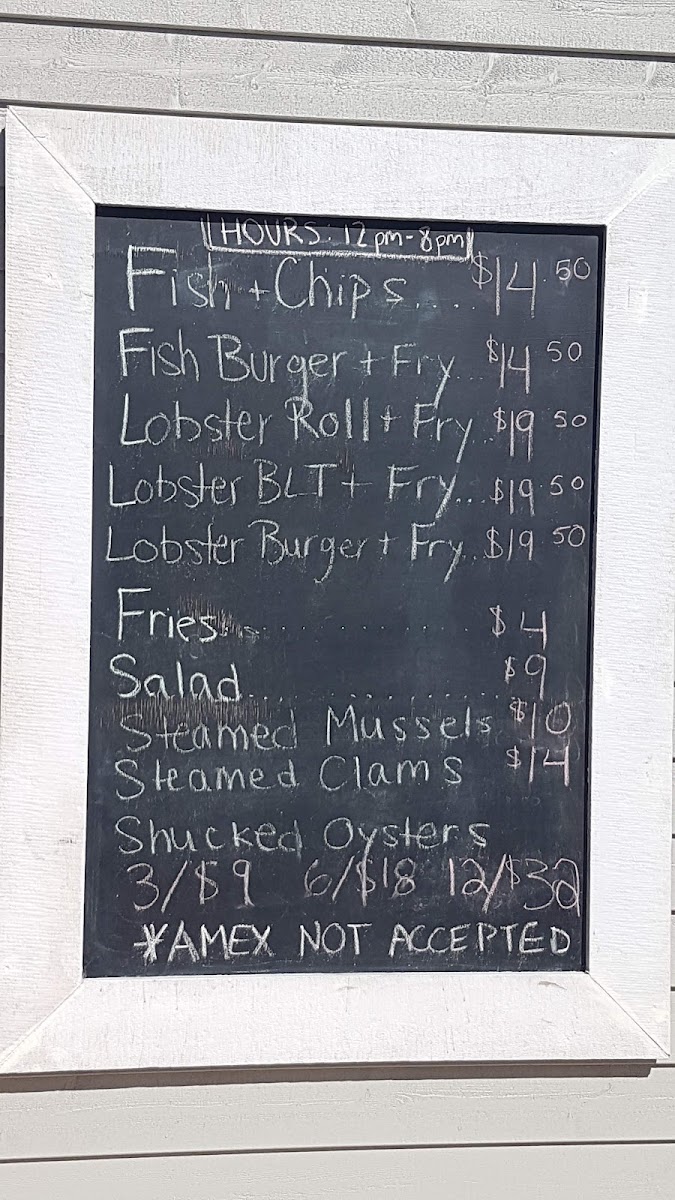 HOURS: 12pm-8pm
Fish + Chips.... $14.50
Fish Burger + Fry... $14 50
Lobster Roll + Fry.. $19 50
Lobster BLT + Fry... $19.50
Lobster Burger + Fry.. $19 50
Fries.............. $4
Salad................ $9
Steamed Mussels $10
Steamed Clams $14
Shucked Oysters
3/$9 6/$18 12/$32
*AMEX NOT ACCEPTED